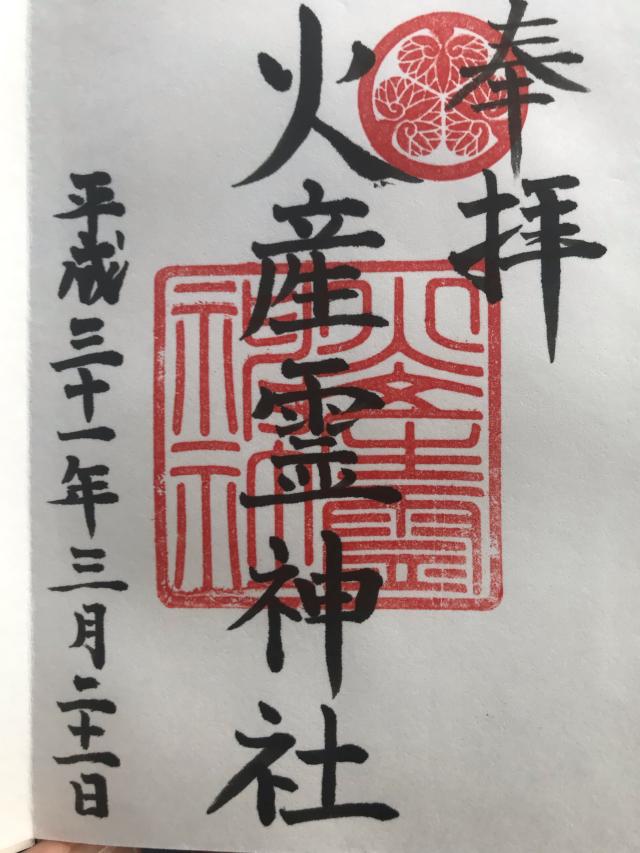 奉拝
火産霊神社
平成三十一年三月二十一日
火産霊
神社